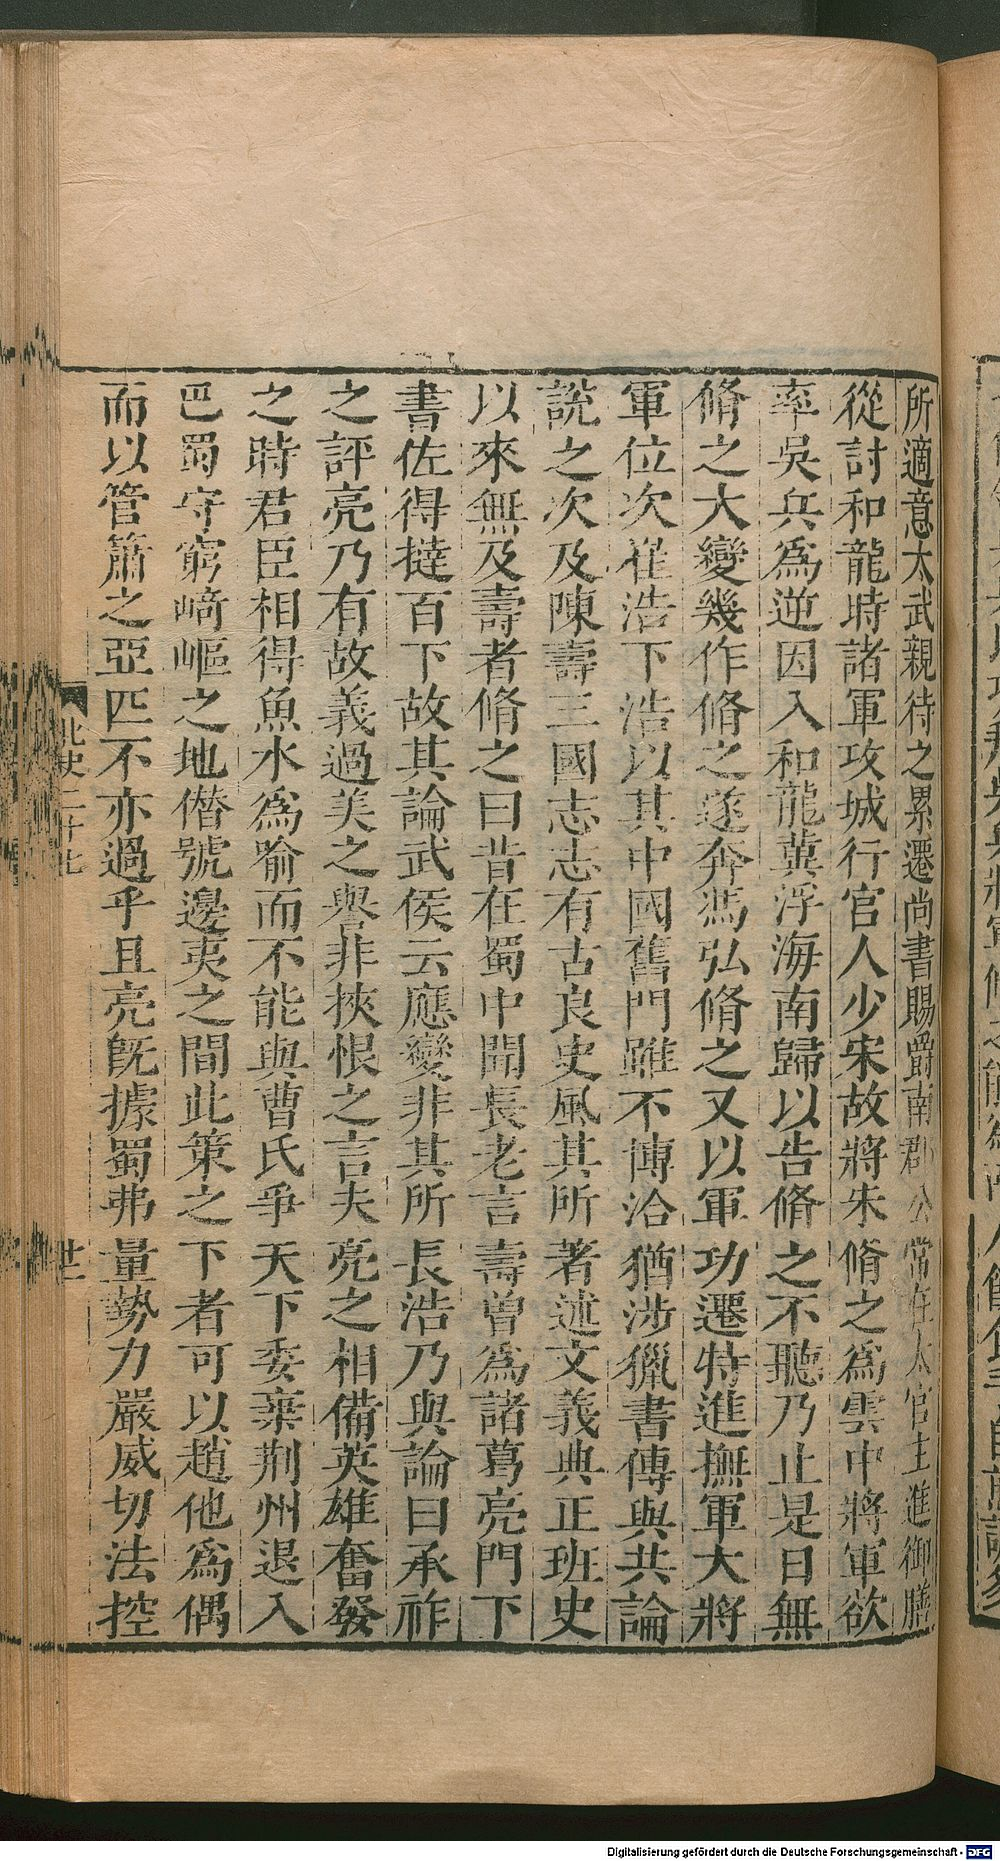 所適意太武親待之累遷尚書賜爵南郡公常在太官主進御膳
從討和龍時諸軍攻城行官人少宋故將朱脩之爲雲中將軍欲
率吳兵爲逆因入和龍兾浮海南歸以告脩之不聽乃止是日無
脩之大變幾作脩之遂奔馮弘脩之又以軍功遷特進撫軍大將
軍位次崔浩下浩以其中國舊門雖不博洽猶涉獵書傳與共論
說之次及陳壽三國志志有古良史風其所著述文義典正班史
以來無及壽者脩之曰昔在蜀中聞長老言壽曾爲諸葛亮門下
書佐得撻百下故其論武侯云應變非其所長浩乃與論曰承祚
之評亮乃有故義過美之譽非挾恨之言夫亮之相備英雄奮發
之時君臣相得魚水爲喻而不能與曹氏爭天下委棄荆州退入
巴蜀守窮崎嶇之地僭號邊夷之間此策之下者可以趙他爲偶
而以管簫之亞匹不亦過乎且亮旣據蜀弗量勢力嚴威切法控
北史二十七
廿二
Digitalisierung gefördert durch die Deutsche Forschungsgemeinschaft - DFG